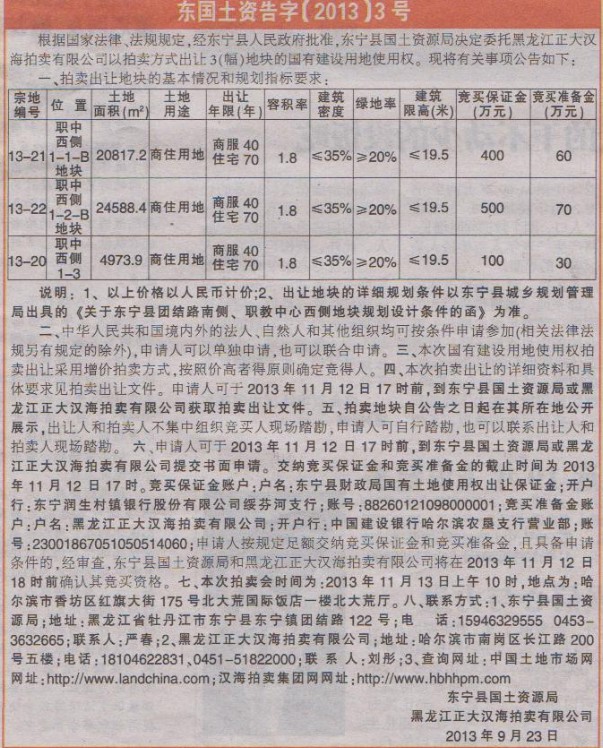 东国土资告字〔2013〕3号
根据国家法律、法规规定,经东宁县人民政府批准,东宁县国土资源局决定委托黑龙江正大汉
海拍卖有限公司以拍卖方式出让3(幅)地块的国有建设用地使用权。现将有关事项公告如下:
一、拍卖出让地块的基本情况和规划指标要求:
宗地编号 位置 土地面积(m²) 土地用途 出让年限(年) 容积率 建筑密度 绿地率 建筑限高(米) 竞买保证金(万元) 竞买准备金(万元)
13-21 职中西侧1-1-B地块 20817.2 商住用地 商服40住宅70 1.8 ≤35% ≥20% ≤19.5 400 60
13-22 职中西侧1-2-B地块 24588.4 商住用地 商服40住宅70 1.8 ≤35% ≥20% ≤19.5 500 70
13-20 职中西侧1-3 4973.9 商住用地 商服40住宅70 1.8 ≤35% ≥20% ≤19.5 100 30
说明:1、以上价格以人民币计价;2、出让地块的详细规划条件以东宁县城乡规划管理
局出具的《关于东宁县团结路南侧、职教中心西侧地块规划设计条件的函》为准。
二、中华人民共和国境内外的法人、自然人和其他组织均可按条件申请参加(相关法律法
规另有规定的除外),申请人可以单独申请,也可以联合申请。三、本次国有建设用地使用权拍
卖出让采用增价拍卖方式,按照价高者得原则确定竞得人。四、本次拍卖出让的详细资料和具
体要求见拍卖出让文件。申请人可于2013年11月12日17时前,到东宁县国土资源局或黑
龙江正大汉海拍卖有限公司获取拍卖出让文件。五、拍卖地块自公告之日起在其所在地公开
展示,出让人和拍卖人不集中组织竞买人现场踏勘,申请人可自行踏勘,也可以联系出让人和
拍卖人现场踏勘。六、申请人可于2013年11月12日17时前,到东宁县国土资源局或黑龙
江正大汉海拍卖有限公司提交书面申请。交纳竞买保证金和竞买准备金的截止时间为2013
年11月12日17时。竞买保证金账户:户名:东宁县财政局国有土地使用权出让保证金;开户
行:东宁润生村镇银行股份有限公司绥芬河支行;账号:88260121098000001;竞买准备金账
户:户名:黑龙江正大汉海拍卖有限公司;开户行:中国建设银行哈尔滨农垦支行营业部;账
号:23001867051050514060;申请人按规定足额交纳竞买保证金和竞买准备金,且具备申请
条件的,经审查,东宁县国土资源局和黑龙江正大汉海拍卖有限公司将在2013年11月12日
18时前确认其竞买资格。七、本次拍卖会时间为:2013年11月13日上午10时,地点为:哈
尔滨市香坊区红旗大街175号北大荒国际饭店一楼北大荒厅。八、联系方式:1、东宁县国土资
源局:地址:黑龙江省牡丹江市东宁县东宁镇团结路122号;电话:15946329555 0453-
3632665;联系人:严春;2、黑龙江正大汉海拍卖有限公司:地址:哈尔滨市南岗区长江路200
号五楼;电话:18104622831、0451-51822000;联系人:刘彤;3、查询网址:中国土地市场网
网址:http://www.landchina.com;汉海拍卖集团网网址:http://www.hbhhpm.com
东宁县国土资源局
黑龙江正大汉海拍卖有限公司
2013年9月23日